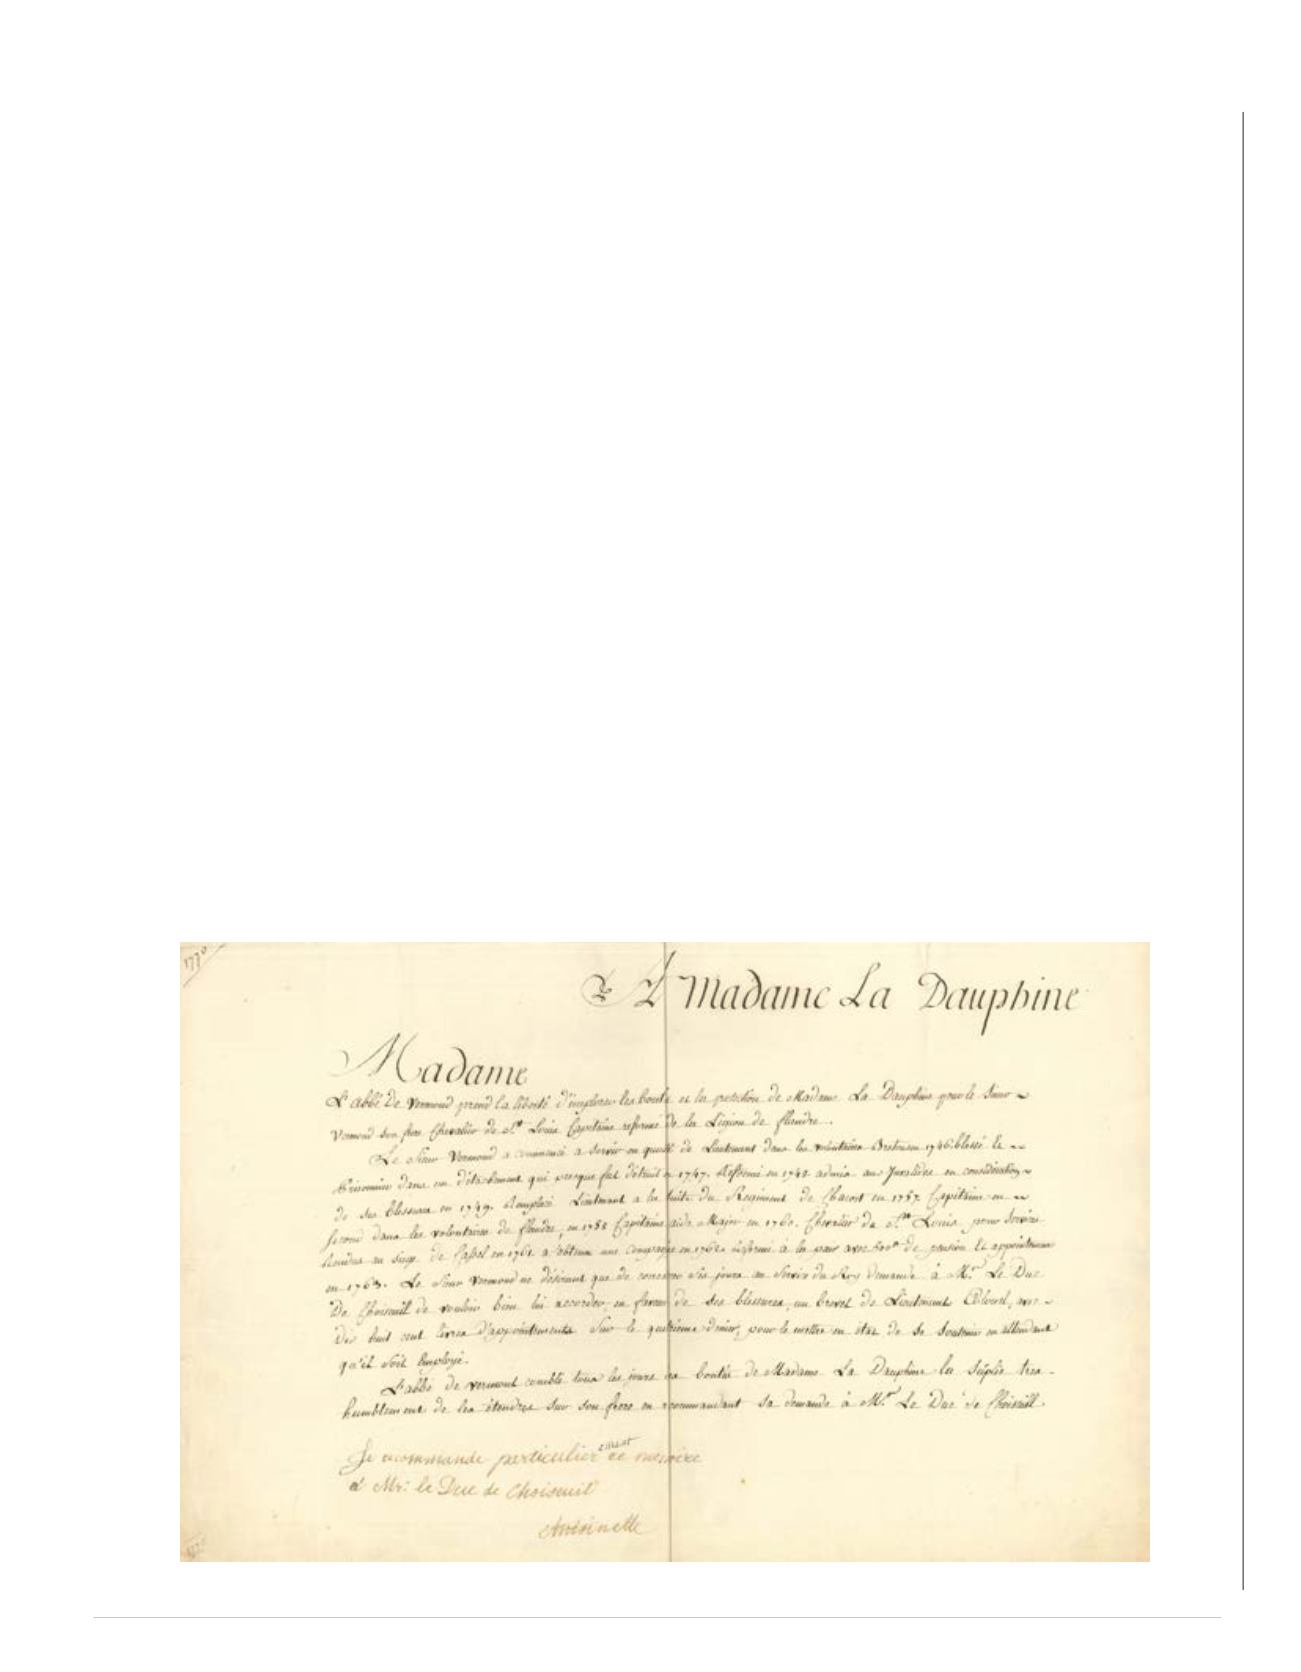 1770
A Madame La Dauphine
Madame
L'abbé De Vermond prend la liberté d'implorer les bontés et la protection de Madame La Dauphine pour le Sieur
Vermond son frere Chevalier de St. Louis Capitaine reformé de la Légion de flandre.
Le Sieur Vermond a commencé a servir en qualité de Lieutenant dans les volontaires Bretons en 1746. blessé Et
Prisonnier dans un détachement qui presque fut détruit en 1747. Refformé en 1748 admis aux Invalides en considération
de ses blessures en 1749. Remplacé Lieutenant a la suite du Regiment de en 1757. Capitaine en
second dans les volontaires de flandre, en 1758 Capitaine aide Major en 1760. Chevalier de St. Louis pour Services
Rendus au siege de Cassel en 1761 a obtenu une Compagnie en 1762 reformé à la paix avec de pension Et appointemens
en 1763. Le Sieur Vermond ne désirant que de consacrer ses jours au Service du Roy Demande à Mr. Le Duc
De Choiseuil de vouloir bien lui accorder, en faveur de ses blessures, un brevet de Lieutenant Colonel, avec
dix huit cent livres d'appointements Sur le quatrieme denier, pour le mettre en état de se soutenir en attendant
qu'il soit Employé.
L'abbé de vermond comblé tous les jours des bontés de Madame La Dauphine la suplie tres
humblement de les étendre sur son frere en recommandant sa demande à Mr. Le Duc de Choiseuil.
Je recommande particulierement ce memoire
a Mr. le Duc de Choiseuil
Antoinette